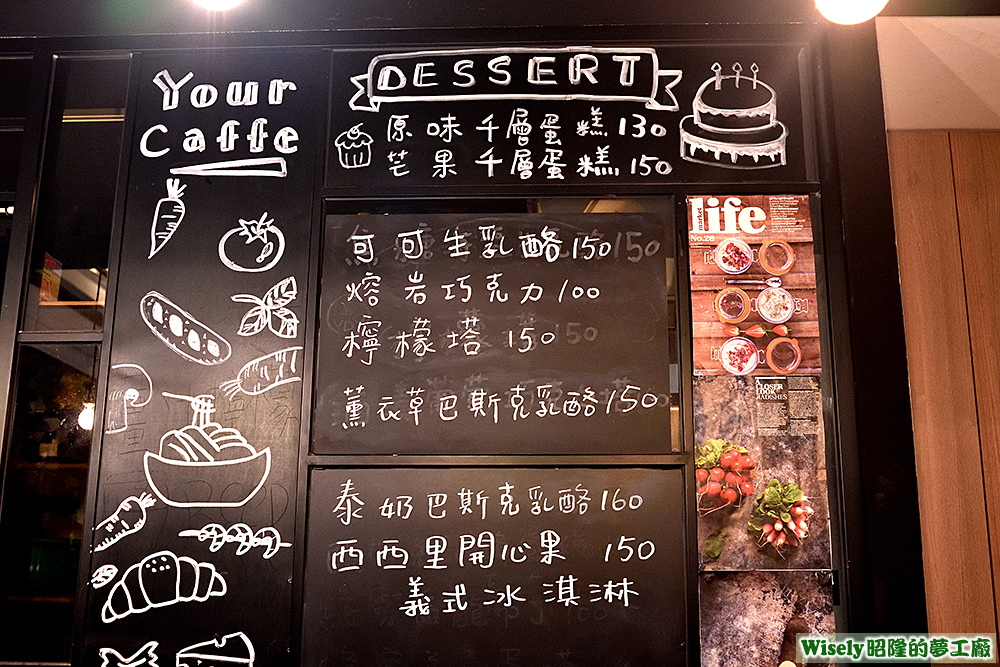 Your
Caffe
DESSERT
原味千層蛋糕 130
芒果千層蛋糕 150
可可生乳酪 150
熔岩巧克力 100
檸檬塔 150
薰衣草巴斯克乳酪 150
泰奶巴斯克乳酪 160
西西里開心果 150
義式冰淇淋
market
life
No.26
A
CLOSER
LOOK
RADISHES
Wisely 昭隆的夢工廠